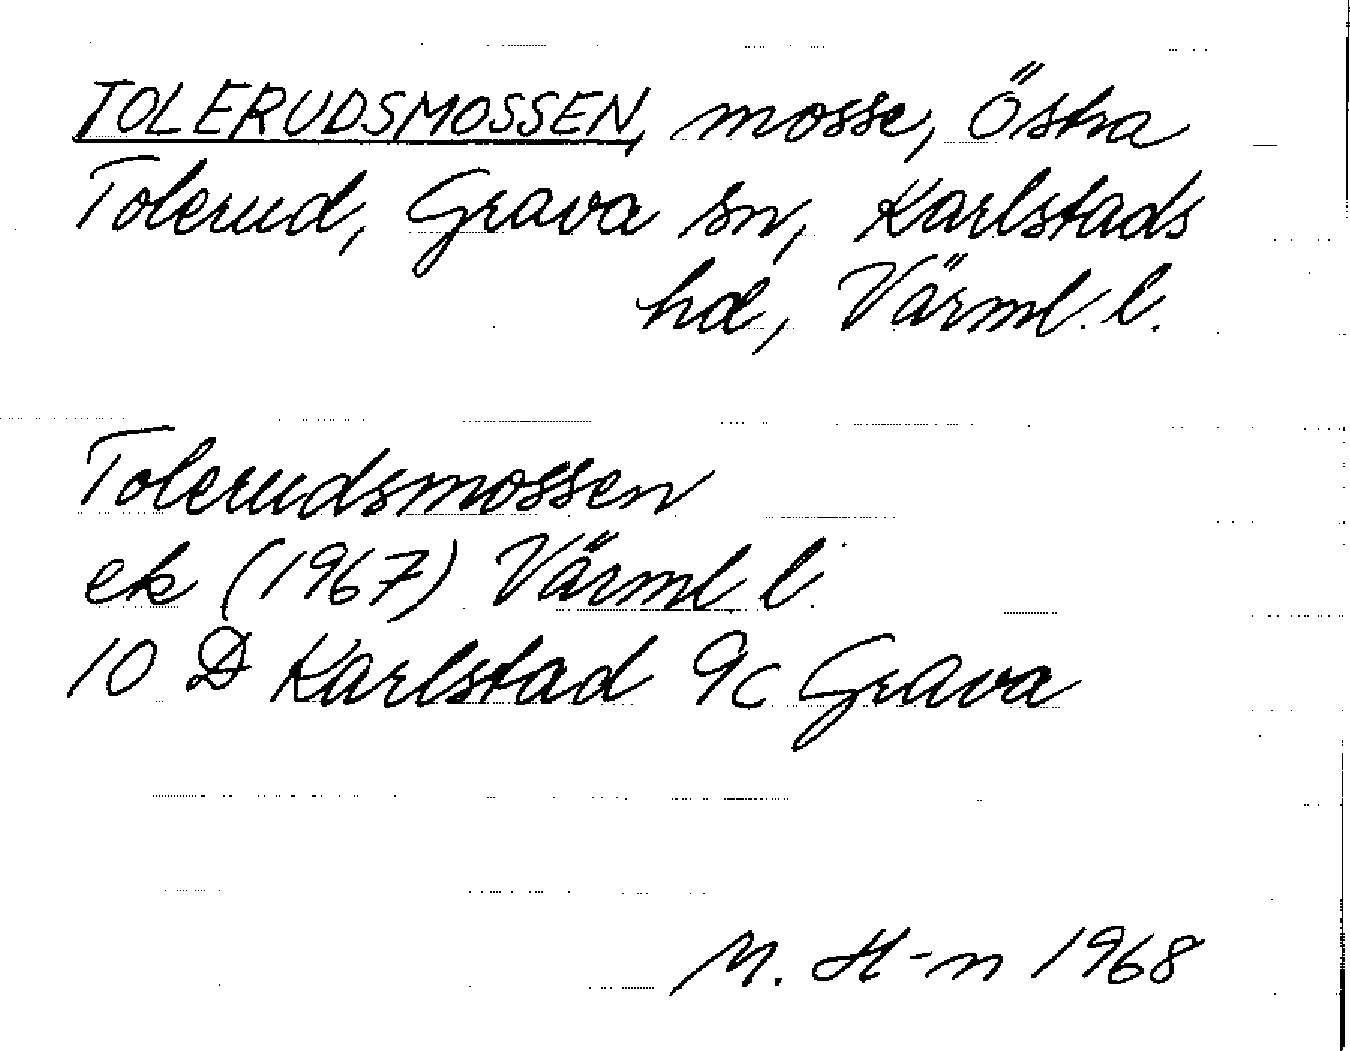 TOLERUDSMOSSEN, mosse, Östra
Tolerud, Grava sn, Karlstads
hd, Värml. l.
Tolerudsmossen
ek (1967) Värml. l.
10 D Karlstad 9c Grava
M. H-n 1968